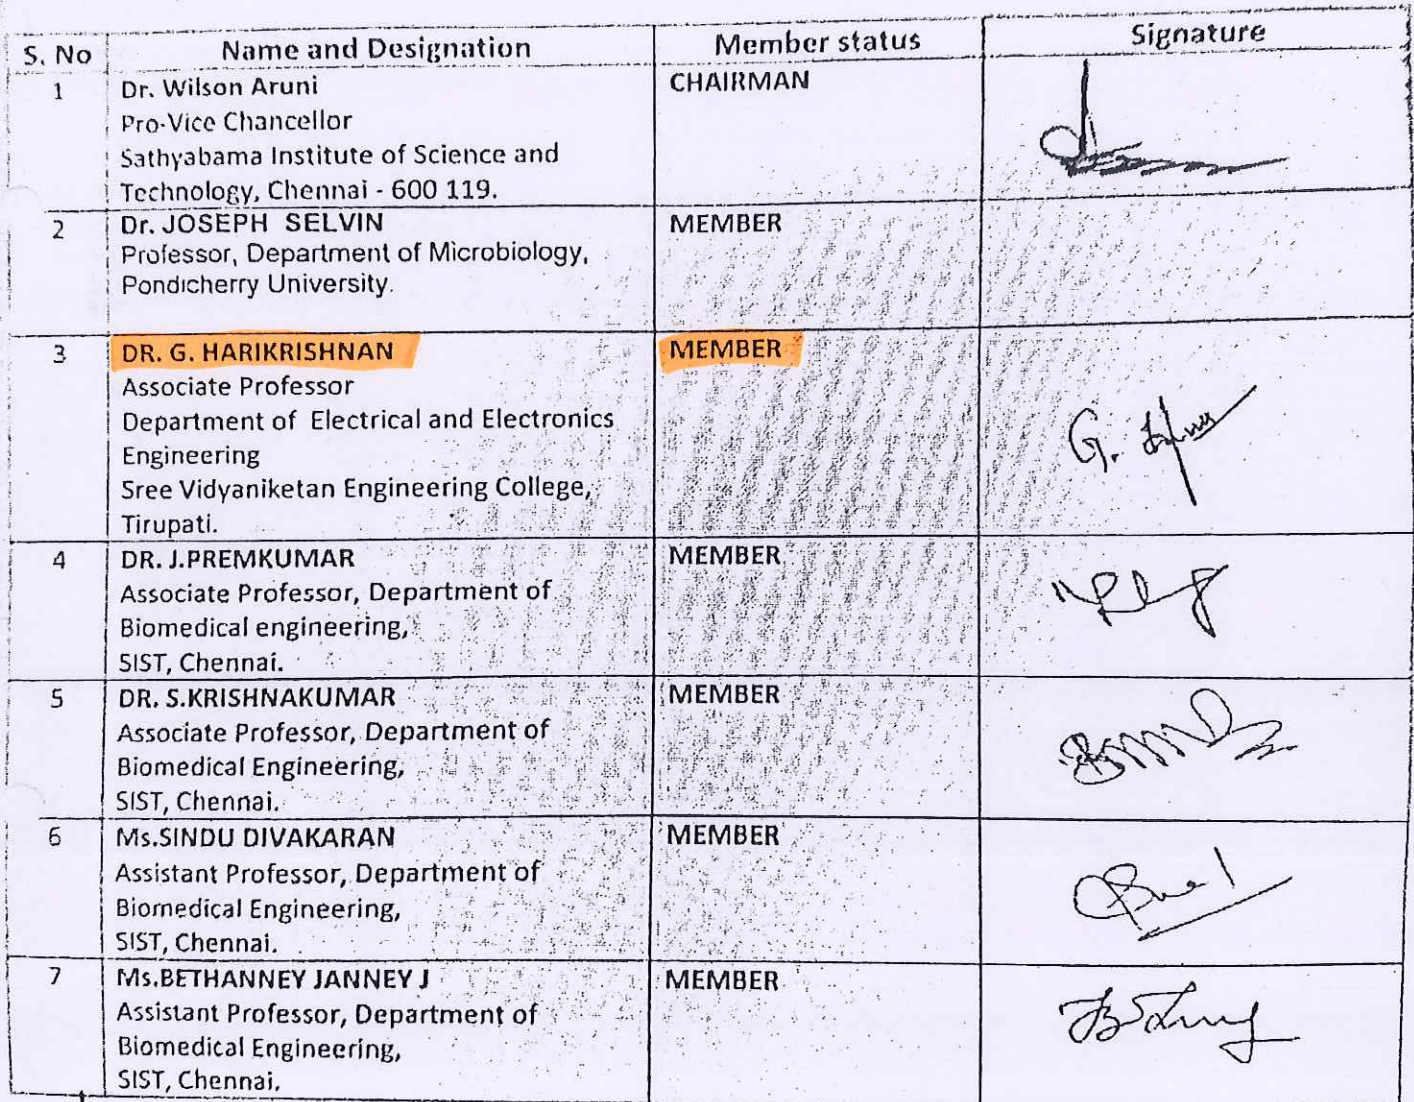 S. No Name and Designation Member status Signature
1 Dr. Wilson Aruni CHAIRMAN
Pro-Vice Chancellor
Sathyabama Institute of Science and
Technology, Chennai - 600 119.
2 Dr. JOSEPH SELVIN MEMBER
Professor, Department of Microbiology,
Pondicherry University.
3 DR. G. HARIKRISHNAN MEMBER
Associate Professor
Department of Electrical and Electronics
Engineering
Sree Vidyaniketan Engineering College,
Tirupati.
G.
4 DR. J.PREMKUMAR MEMBER
Associate Professor, Department of
Biomedical engineering,
SIST, Chennai.
5 DR. S.KRISHNAKUMAR MEMBER
Associate Professor, Department of
Biomedical Engineering,
SIST, Chennai.
6 Ms.SINDU DIVAKARAN MEMBER
Assistant Professor, Department of
Biomedical Engineering,
SIST, Chennai.
7 Ms.BETHANNEY JANNEY J MEMBER
Assistant Professor, Department of
Biomedical Engineering,
SIST, Chennai.